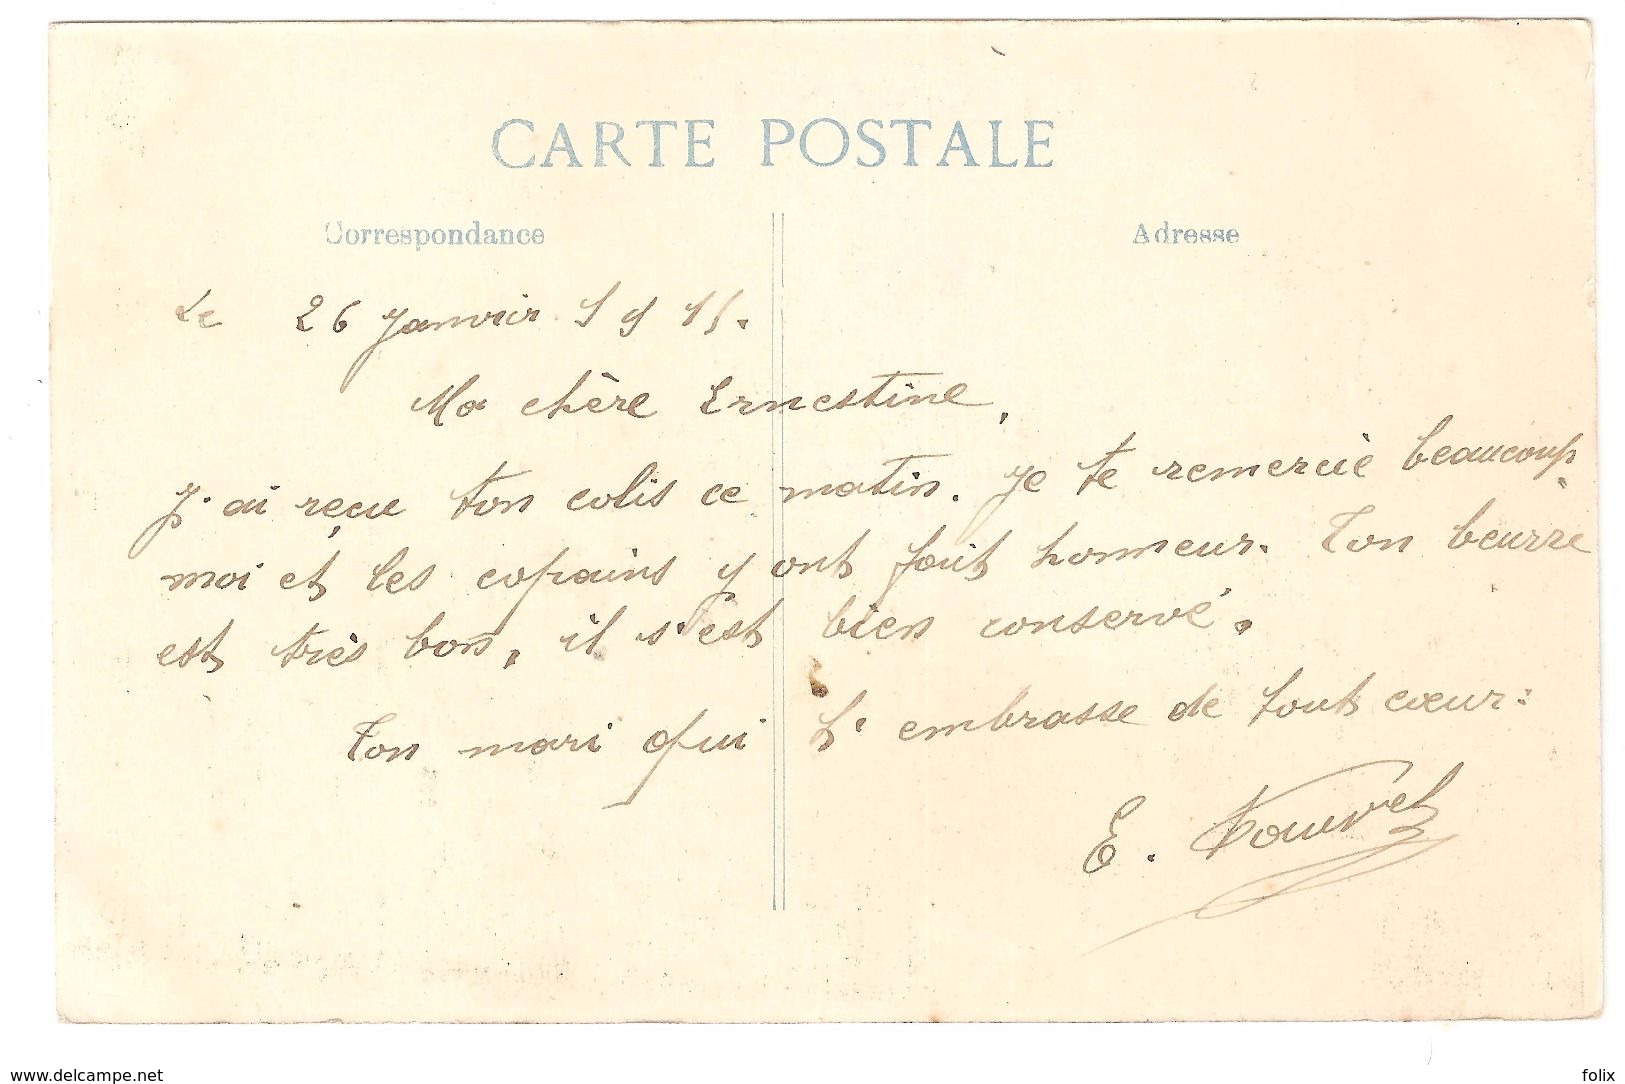 CARTE POSTALE
Correspondance
Adresse
Le 26 Janvier 1915.
Ma chère Ernestine,
J'ai reçu ton colis ce matin. Je te remercie beaucoup,
moi et les copains y ont fait honneur. Ton beurre
est très bon, il s'est bien conservé.
Ton mari qui t'embrasse de tout cœur:
E.
www.delcampe.net
folix